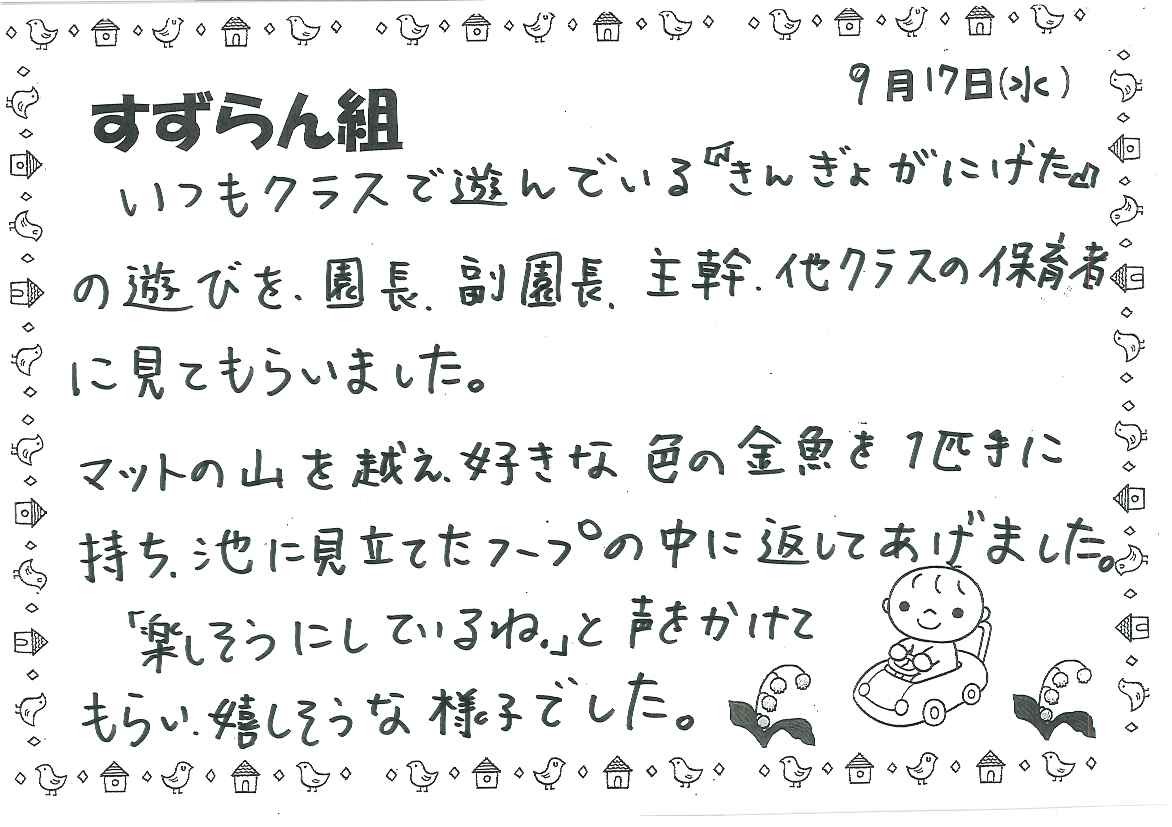 9月17日(水)
すずらん組
いつもクラスで遊んでいる『きんぎょがにげた』
の遊びを、園長、副園長、主幹、他クラスの保育者
に見てもらいました。
マットの山を越え、好きな色の金魚を1匹手に
持ち、池に見立てたフープの中に返してあげました。
「楽しそうにしているね。」と声をかけて
もらい、嬉しそうな様子でした。